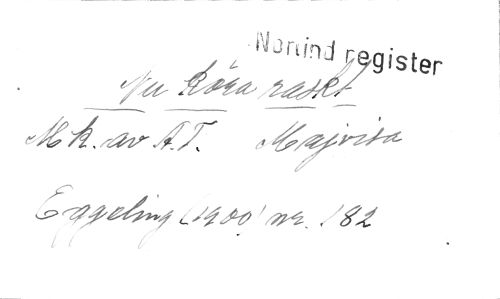 Norlind register
Nu köra raskt
Mk. av A.T. Majvisa
Eggeling (1900) nr. 182